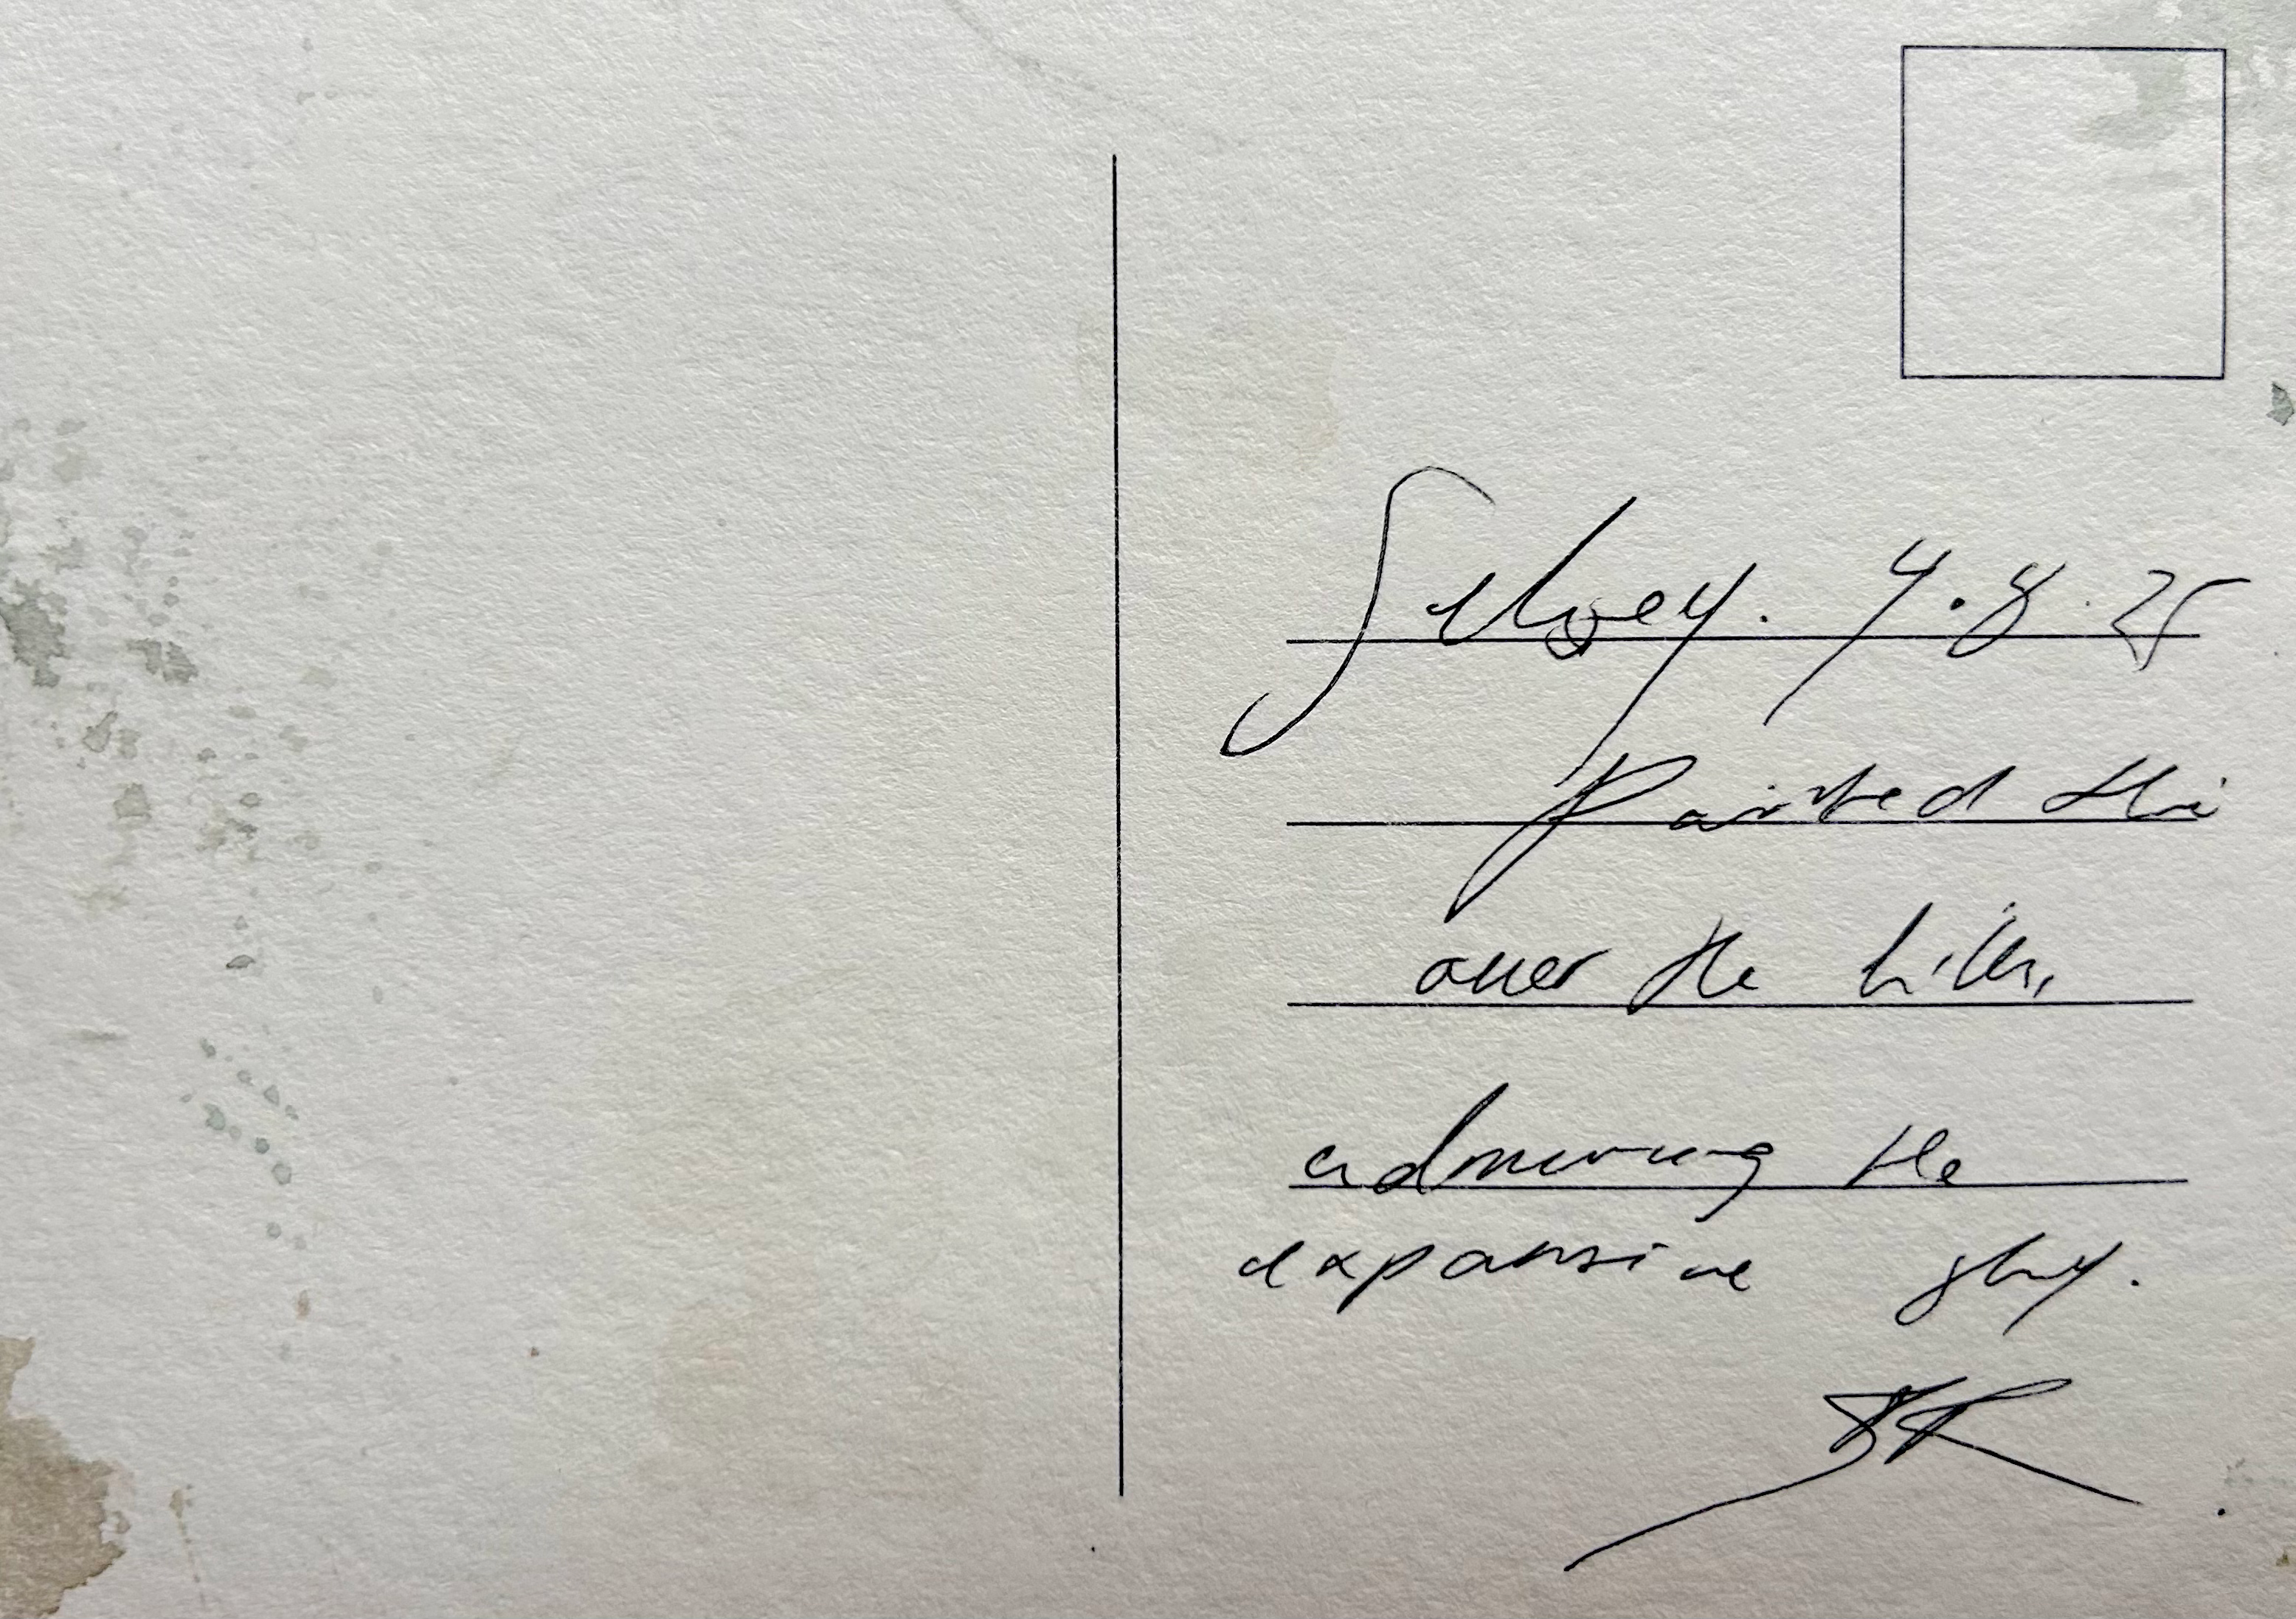 Selsey. 4.8.25
Painted this
over the hills,
admiring the
expansive sky.
JR